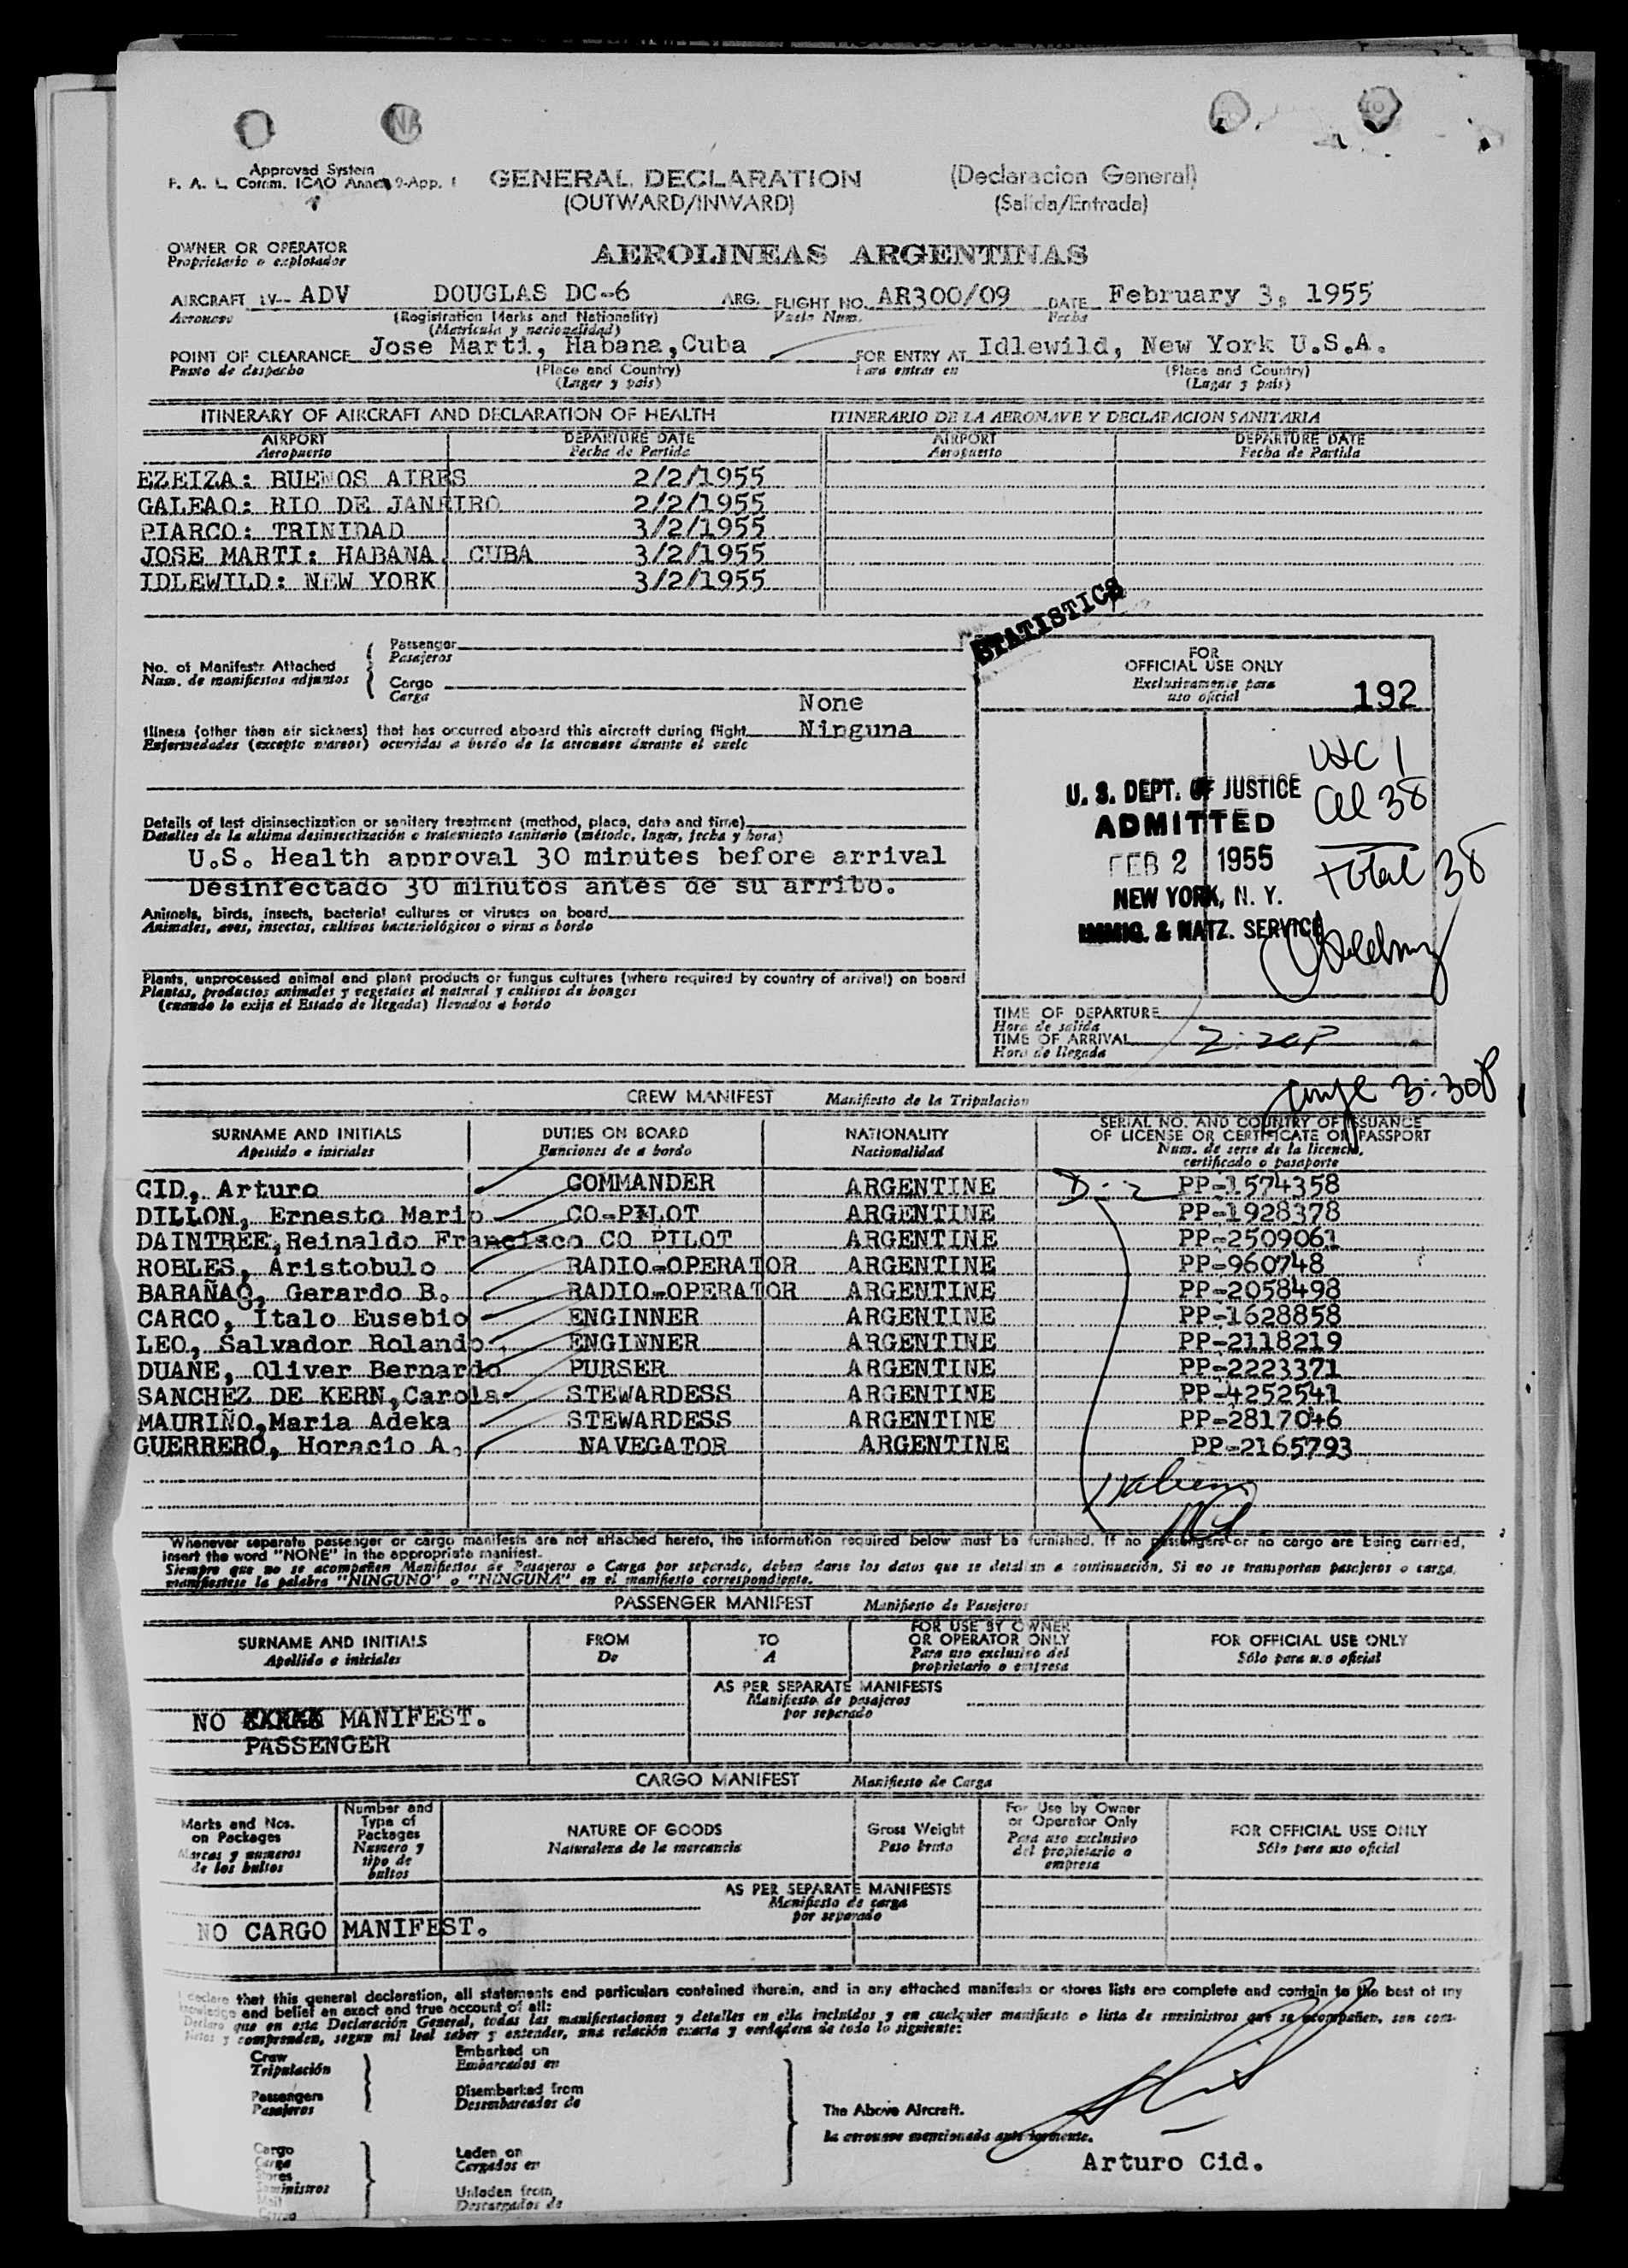 Approved System
F. A. L. Comm. ICAO Annex 9-App. 1
GENERAL DECLARATION
(OUTWARD/INWARD)
(Declaracion General)
(Salida/Entrada)
OWNER OR OPERATOR
Propietario o explotador
AEROLINEAS ARGENTINAS
AIRCRAFT LV-- ADV DOUGLAS DC-6 ARG. FLIGHT NO. AR300/09 DATE February 3, 1955
Aeronave (Registration Marks and Nationality) Vuelo Num. Fecha
(Matricula y nacionalidad)
POINT OF CLEARANCE Jose Marti, Habana, Cuba FOR ENTRY AT Idlewild, New York U.S.A.
Punto de despacho (Place and Country) Para entrar en (Place and Country)
(Lugar y pais) (Lugar y pais)
ITINERARY OF AIRCRAFT AND DECLARATION OF HEALTH ITINERARIO DE LA AERONAVE Y DECLARACION SANITARIA
AIRPORT DEPARTURE DATE AIRPORT DEPARTURE DATE
Aeropuerto Fecha de Partida Aeropuerto Fecha de Partida
EZEIZA: BUENOS AIRES 2/2/1955
GALEAO: RIO DE JANEIRO 2/2/1955
PIARCO: TRINIDAD 3/2/1955
JOSE MARTI: HABANA, CUBA 3/2/1955
IDLEWILD: NEW YORK 3/2/1955
STATISTICS
No. of Manifests Attached
Num. de manifiestos adjuntos
Passenger
Pasajeros
Cargo
Carga
None
Illness (other than air sickness) that has occurred aboard this aircraft during flight Ninguna
Enfermedades (excepto mareos) ocurridas a bordo de la aeronave durante el vuelo
Details of last disinsectization or sanitary treatment (method, place, date and time)
Detalles de la ultima desinsectización o tratamiento sanitario (método, lugar, fecha y hora)
U.S. Health approval 30 minutes before arrival
Desinfectado 30 minutos antes de su arribo.
Animals, birds, insects, bacterial cultures or viruses on board
Animales, aves, insectos, cultivos bacteriológicos o virus a bordo
Plants, unprocessed animal and plant products or fungus cultures (where required by country of arrival) on board
Plantas, productos animales y vegetales al natural y cultivos de hongos
(cuando lo exija el Estado de llegada) llevados a bordo
FOR
OFFICIAL USE ONLY
Exclusivamente para
uso oficial
192
USC 1
Al 38
U. S. DEPT. OF JUSTICE
ADMITTED
FEB 2 1955
NEW YORK, N. Y.
IMMIG. & NATZ. SERVICE
total 38
TIME OF DEPARTURE
Hora de salida
TIME OF ARRIVAL 2:20P
Hora de llegada
3:30P
CREW MANIFEST Manifiesto de la Tripulacion
SURNAME AND INITIALS DUTIES ON BOARD NATIONALITY SERIAL NO. AND COUNTRY OF ISSUANCE OF LICENSE OR CERTIFICATE OR PASSPORT
Apellido e iniciales Funciones de a bordo Nacionalidad Num. de serie de la licencia, certificado o pasaporte
CID, Arturo COMMANDER ARGENTINE D-2 PP-1574358
DILLON, Ernesto Mario CO-PILOT ARGENTINE PP-1928378
DAINTREE, Reinaldo Francisco CO PILOT ARGENTINE PP-2509061
ROBLES, Aristobulo RADIO-OPERATOR ARGENTINE PP-960748
BARAÑAO, Gerardo B. RADIO-OPERATOR ARGENTINE PP-2058498
CARCO, Italo Eusebio ENGINNER ARGENTINE PP-1628858
LEO, Salvador Rolando ENGINNER ARGENTINE PP-2118219
DUANE, Oliver Bernardo PURSER ARGENTINE PP-2223371
SANCHEZ DE KERN, Carola STEWARDESS ARGENTINE PP-4252541
MAURIÑO, Maria Adeka STEWARDESS ARGENTINE PP-2817046
GUERRERO, Horacio A. NAVEGATOR ARGENTINE PP-2165793
Whenever separate passenger or cargo manifests are not attached hereto, the information required below must be furnished. If no passengers or no cargo are being carried,
insert the word "NONE" in the appropriate manifest.
Siempre que no se acompañen Manifiestos de Pasajeros o Carga por separado, deben darse los datos que se detallan a continuación. Si no se transportan pasajeros o carga,
manifiestese la palabra "NINGUNO" o "NINGUNA" en el manifiesto correspondiente.
PASSENGER MANIFEST Manifiesto de Pasajeros
SURNAME AND INITIALS FROM TO FOR USE BY OWNER OR OPERATOR ONLY FOR OFFICIAL USE ONLY
Apellido e iniciales De A Para uso exclusivo del propietario o empresa Sólo para uso oficial
AS PER SEPARATE MANIFESTS
Manifiesto de pasajeros
por separado
NO MANIFEST.
PASSENGER
CARGO MANIFEST Manifiesto de Carga
Marks and Nos. on Packages Number and Type of Packages NATURE OF GOODS Gross Weight For Use by Owner or Operator Only FOR OFFICIAL USE ONLY
Marcas y numeros de los bultos Numero y tipo de bultos Naturaleza de la mercancia Peso bruto Para uso exclusivo del propietario o empresa Sólo para uso oficial
AS PER SEPARATE MANIFESTS
Manifiesto de carga
por separado
NO CARGO MANIFEST.
I declare that this general declaration, all statements and particulars contained therein, and in any attached manifests or stores lists are complete and contain to the best of my
knowledge and belief an exact and true account of all:
Declaro que en esta Declaración General, todas las manifestaciones y detalles en ella incluidos y en cualquier manifiesto o lista de suministros que se acompañen, son com-
pletos y comprenden, segun mi leal saber y entender, una relación exacta y verdadera de todo lo siguiente:
Crew Embarked on
Tripulación Embarcados en
Passengers Disembarked from
Pasajeros Desembarcados de
The Above Aircraft.
La aeronave mencionada anteriormente.
Cargo Laden on
Carga Cargados en
Stores
Suministros
Mail Unladen from
Correo Descargados de
Arturo Cid.